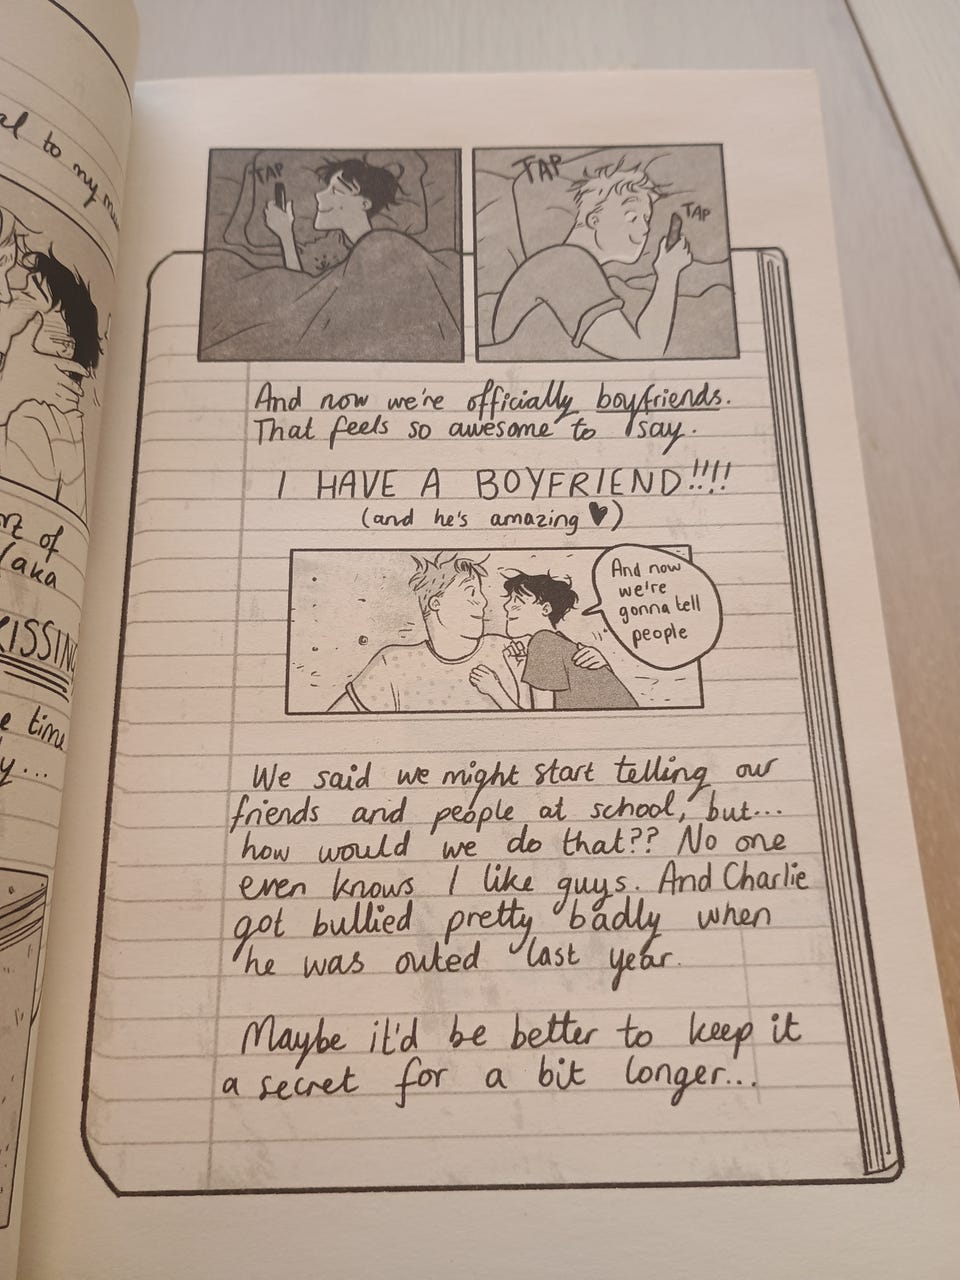 al to my
rt of
(aka
KISSING
e time
y...
TAP
TAP
TAP
And now we're officially boyfriends.
That feels so awesome to say.
I HAVE A BOYFRIEND!!!!
(and he's amazing ♥)
And now
we're
gonna tell
people
We said we might start telling our
friends and people at school, but...
how would we do that?? No one
even knows I like guys. And Charlie
got bullied pretty badly when
he was outed last year.
Maybe it'd be better to keep it
a secret for a bit longer...